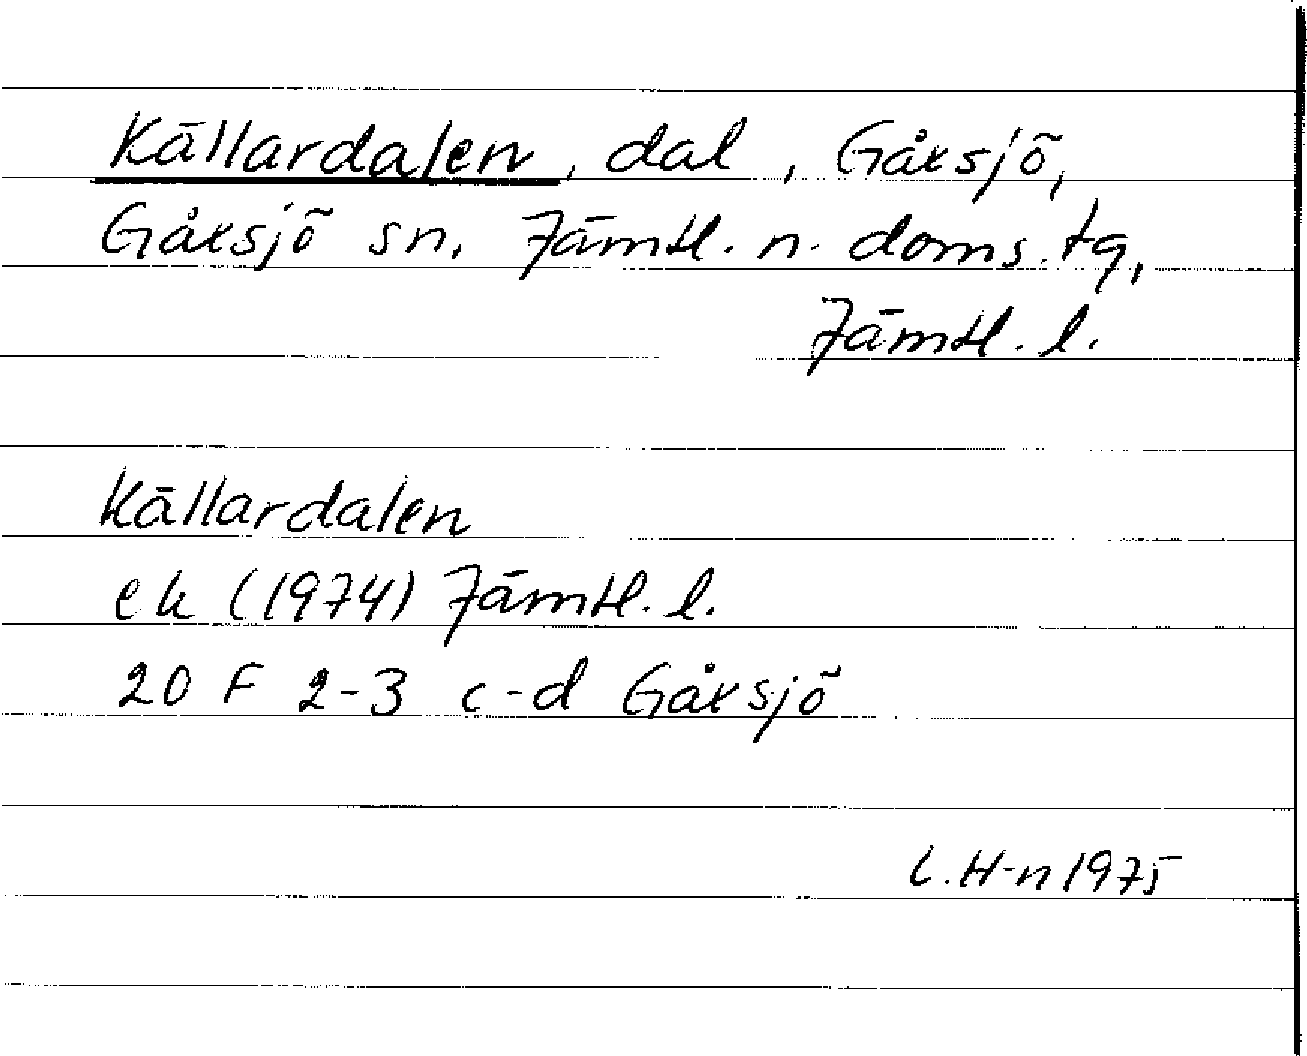 Källardalen, dal, Gåxsjö,
Gåxsjö sn, Jämtl. n. doms. tg,
Jämtl. l.
Källardalen
ek (1974) Jämtl. l.
20 F 2-3 c-d Gåxsjö
L. H-n 1975